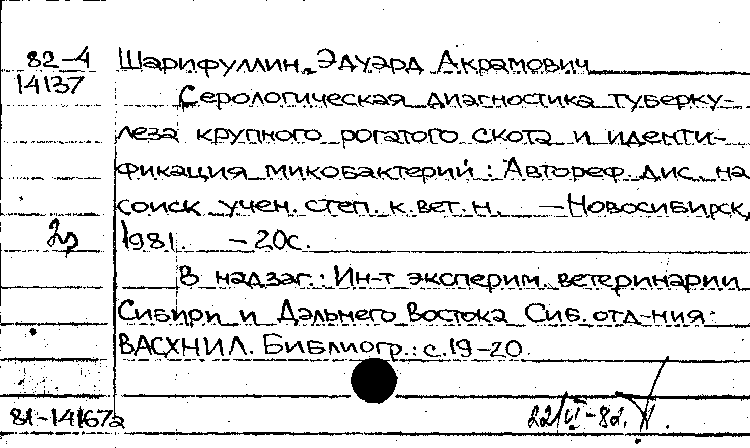 82-4 Шарифуллин, Эдуард Акрамович
14137
Серологическая диагностика туберку-
леза крупного рогатого скота и иденти-
фикация микобактерий: Автореф. дис. на
соиск. учен. степ. к.вет.н. — Новосибирск,
2 1981. — 20с.
В надзаг.: Ин-т эксперим. ветеринарии
Сибири и Дальнего Востока Сиб. отд-ния
ВАСХНИЛ. Библиогр.: с.19-20.
81-14167а 22/VI-82.